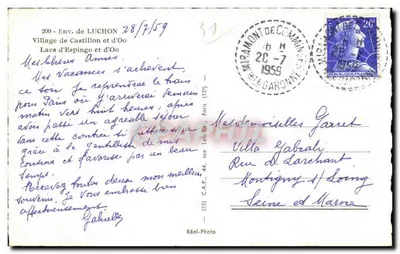 209 - Env. de LUCHON 28/7/59
Village de Castillon et d'Oo
Lacs d'Espingo et d'Oo
31
Mes chères Amies.
Mes vacances s'achèvent
ce soir. Je reprendrai le train
pour Paris où j'arriverai demain
matin vers huit heures; après
avoir passé un agréable séjour
dans cette contrée si
grâce à la gentillesse de mes
cousins et favorisé par un beau
temps.
Recevez toutes deux mon meilleur
souvenir. Je vous embrasse bien
affectueusement
Gabrielle
MIRAMONT DE COMMINGES
HTE GARONNE
28-7
1959
20F
Mesdemoiselles Garet
Villa Gabraly
Rue de Larchant
Montigny s/ Loing
Seine et Marne
Réal-Photo